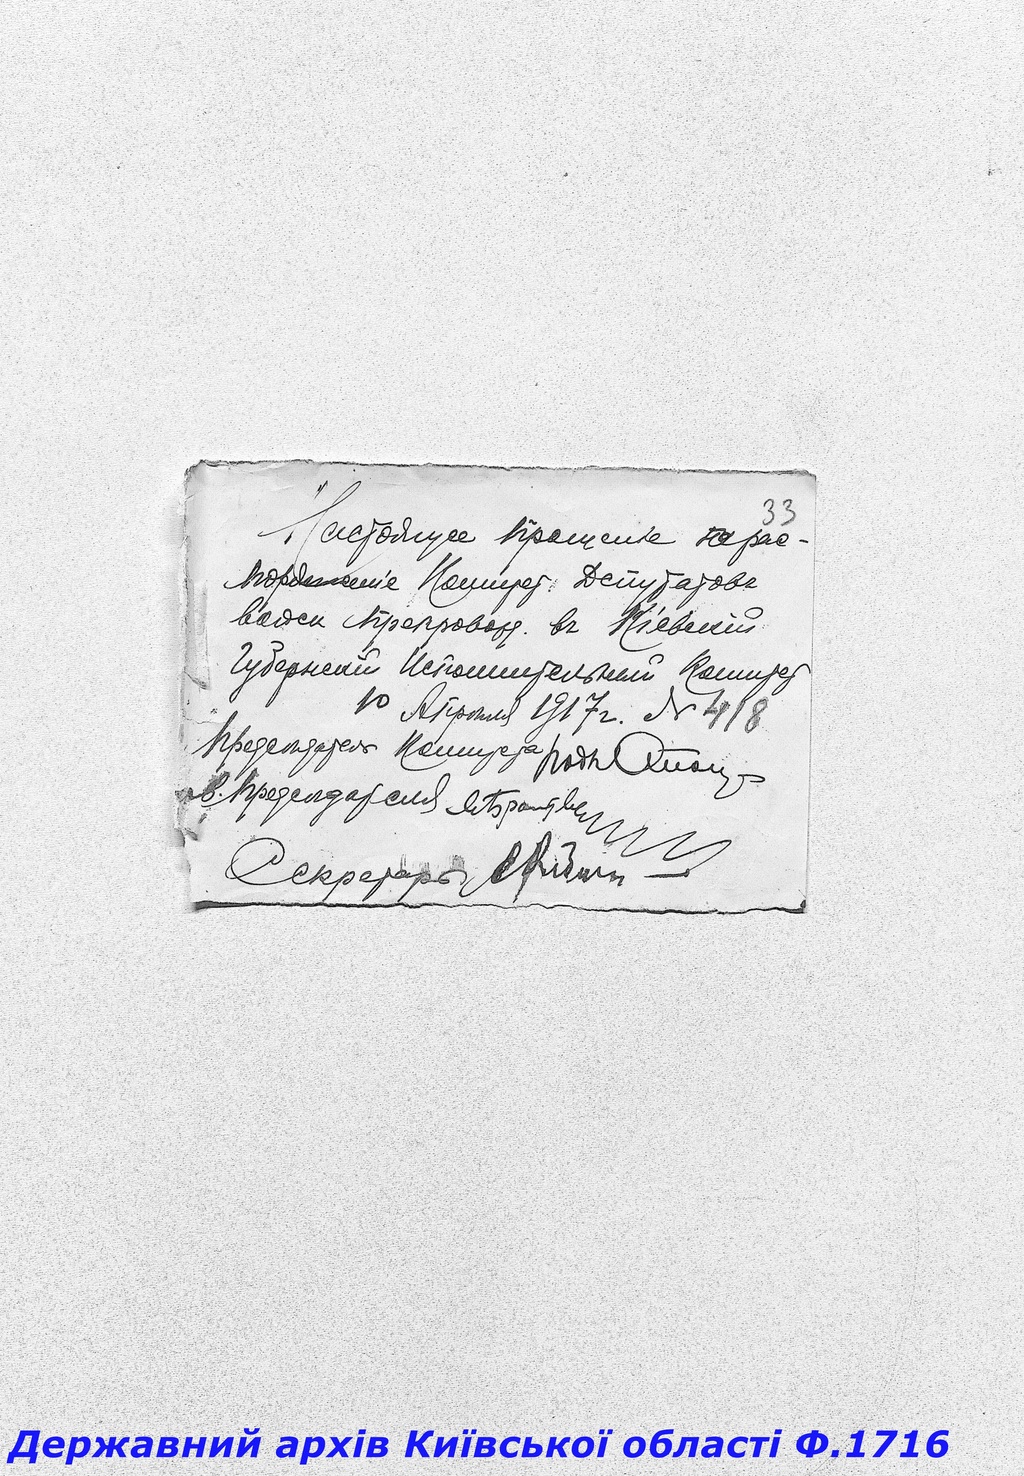 33
Настоящее прошеніе на рас-
поряженіе Комитет. Депутатовъ
войск препровожд. въ Кіевскій
Губернскій Исполнительный Комитет
10 Апрѣля 1917 г. № 418
Предсѣдатель Комитета
в. Предсѣдателя
Секретарь
Державний архів Київської області Ф.1716